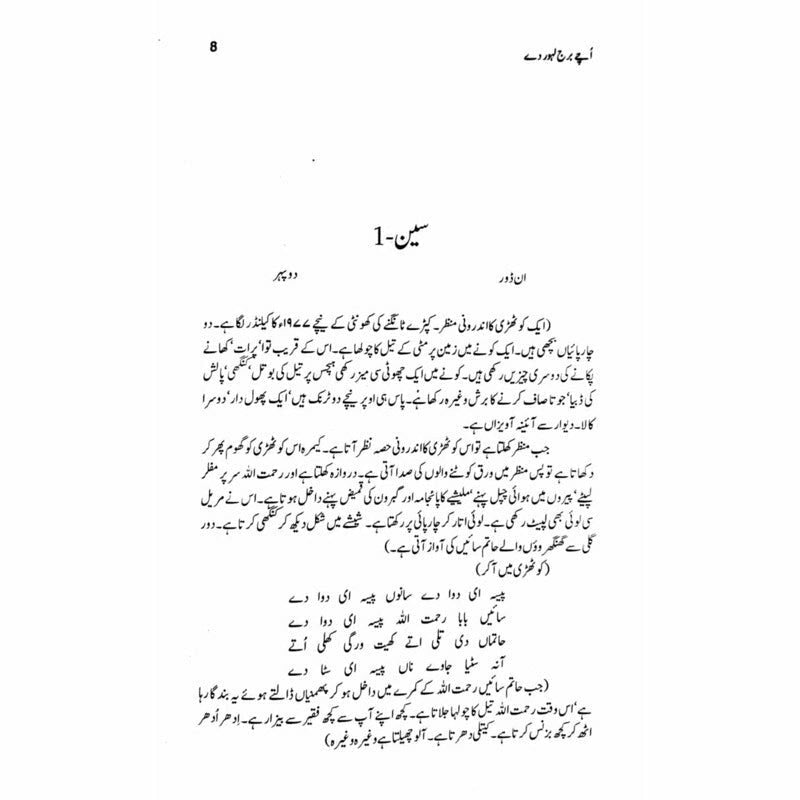 اُچے برج لہور دے 8
سین-1
ان ڈور دوپہر
(ایک کوٹھڑی کا اندرونی منظر۔ کپڑے ٹانگنے کی کھونٹی کے نیچے ۱۹۷۷ء کا کیلنڈر لگا ہے۔ دو
چارپائیاں بچھی ہیں۔ ایک کونے میں زمین پر مٹی کے تیل کا چولھا ہے۔ اس کے قریب توا' پرات' کھانے
پکانے کی دوسری چیزیں رکھی ہیں۔ کونے میں ایک چھوٹی سی میز رکھی ہے جس پر تیل کی بوتل' کنگھی' پالش
کی ڈبیا' جوتا صاف کرنے کا برش وغیرہ رکھا ہے۔ پاس ہی اوپر نیچے دو ٹرنک ہیں' ایک پھول دار' دوسرا
کالا۔ دیوار سے آئینہ آویزاں ہے۔
جب منظر کھلتا ہے تو اس کوٹھڑی کا اندرونی حصہ نظر آتا ہے۔ کیمرہ اس کوٹھڑی کو گھوم پھر کر
دکھاتا ہے تو پس منظر میں ورق کوٹنے والوں کی صدا آتی ہے۔ دروازہ کھلتا ہے اور رحمت اللہ سر پر مفلر
لپیٹے' پیروں میں ہوائی چپل پہنے' ملیشیے کا پائجامہ اور گبرون کی قمیض پہنے داخل ہوتا ہے۔ اس نے مریل
سی لوئی بھی لپیٹ رکھی ہے۔ لوئی اتار کر چارپائی پر رکھتا ہے۔ شیشے میں شکل دیکھ کر کنگھی کرتا ہے۔ دور
گلی سے گھنگھروؤں والے حاتم سائیں کی آواز آتی ہے۔)
(کوٹھڑی میں آکر)
پیسہ ای دوا دے سانوں پیسہ ای دوا دے
سائیں بابا رحمت اللہ پیسہ ای دوا دے
حاتماں دی تلی اتے کھیت ورگی کھلی اُتے
آنہ سٹیا جاوے ناں پیسہ ای سٹا دے
(جب حاتم سائیں رحمت اللہ کے کمرے میں داخل ہو کر پھمنیاں ڈالتے ہوئے یہ بند گا رہا
ہے' اس وقت رحمت اللہ تیل کا چولہا جلاتا ہے۔ کچھ اپنے آپ سے کچھ فقیر سے بیزار ہے۔ اِدھر اُدھر
اٹھ کر کچھ بزنس کرتا ہے۔ کیتلی دھرتا ہے۔ آلو چھیلتا ہے وغیرہ وغیرہ)